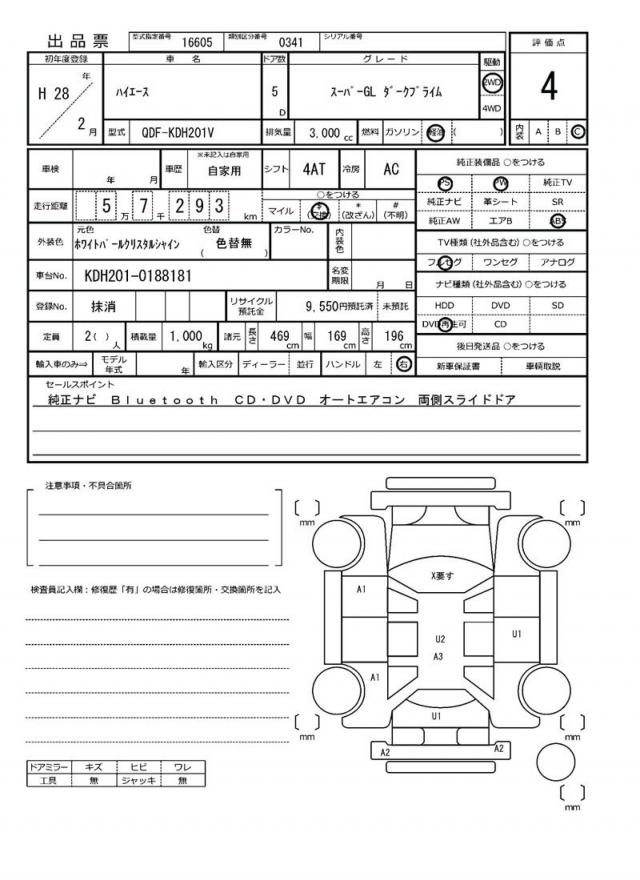 出品票 型式指定番号 16605 類別区分番号 0341 シリアル番号
初年度登録 車 名 ドア数 グレード 駆動 評価点
H 28 年 2 月 ハイエース 5 D スーパーGL ダークプライム 2WD 4WD 4
型式 QDF-KDH201V 排気量 3,000 cc 燃料 ガソリン 軽油 ( ) 内装 A B C
車検 年 月 車歴 ※未記入は自家用 自家用 シフト 4AT 冷房 AC 純正装備品 ○をつける
PS PW 純正TV
走行距離 5 万 7 千 2 9 3 km ○をつける マイル $ (交換) * (改ざん) # (不明) 純正ナビ 革シート SR
純正AW エアB ABS
外装色 元色 ホワイトパールクリスタルシャイン 色替 ( 色替無 ) カラーNo. 内装色 TV種類 (社外品含む) ○をつける
フルセグ ワンセグ アナログ
車台No. KDH201-0188181 名変期限 月 日 ナビ種類 (社外品含む) ○をつける
登録No. 抹消 リサイクル預託金 9,550円預託済 未預託 HDD DVD SD
DVD再生可 CD
定員 2 ( ) 人 積載量 1,000 kg 諸元 長さ 469 cm 幅 169 cm 高さ 196 cm 後日発送品 ○をつける
輸入車のみ⇒ モデル年式 年 輸入区分 ディーラー 並行 ハンドル 左 右 新車保証書 車輌取説
セールスポイント
純正ナビ Bluetooth CD・DVD オートエアコン 両側スライドドア
注意事項・不具合箇所
検査員記入欄：修復歴「有」の場合は修復箇所・交換箇所を記入
[ ] mm [ ] mm
X要す
A1
U2 U1
A3
A1
U1
[ ] mm [ ] mm
A2 A2
[ ] mm
ドアミラー キズ ヒビ ワレ
工具 無 ジャッキ 無